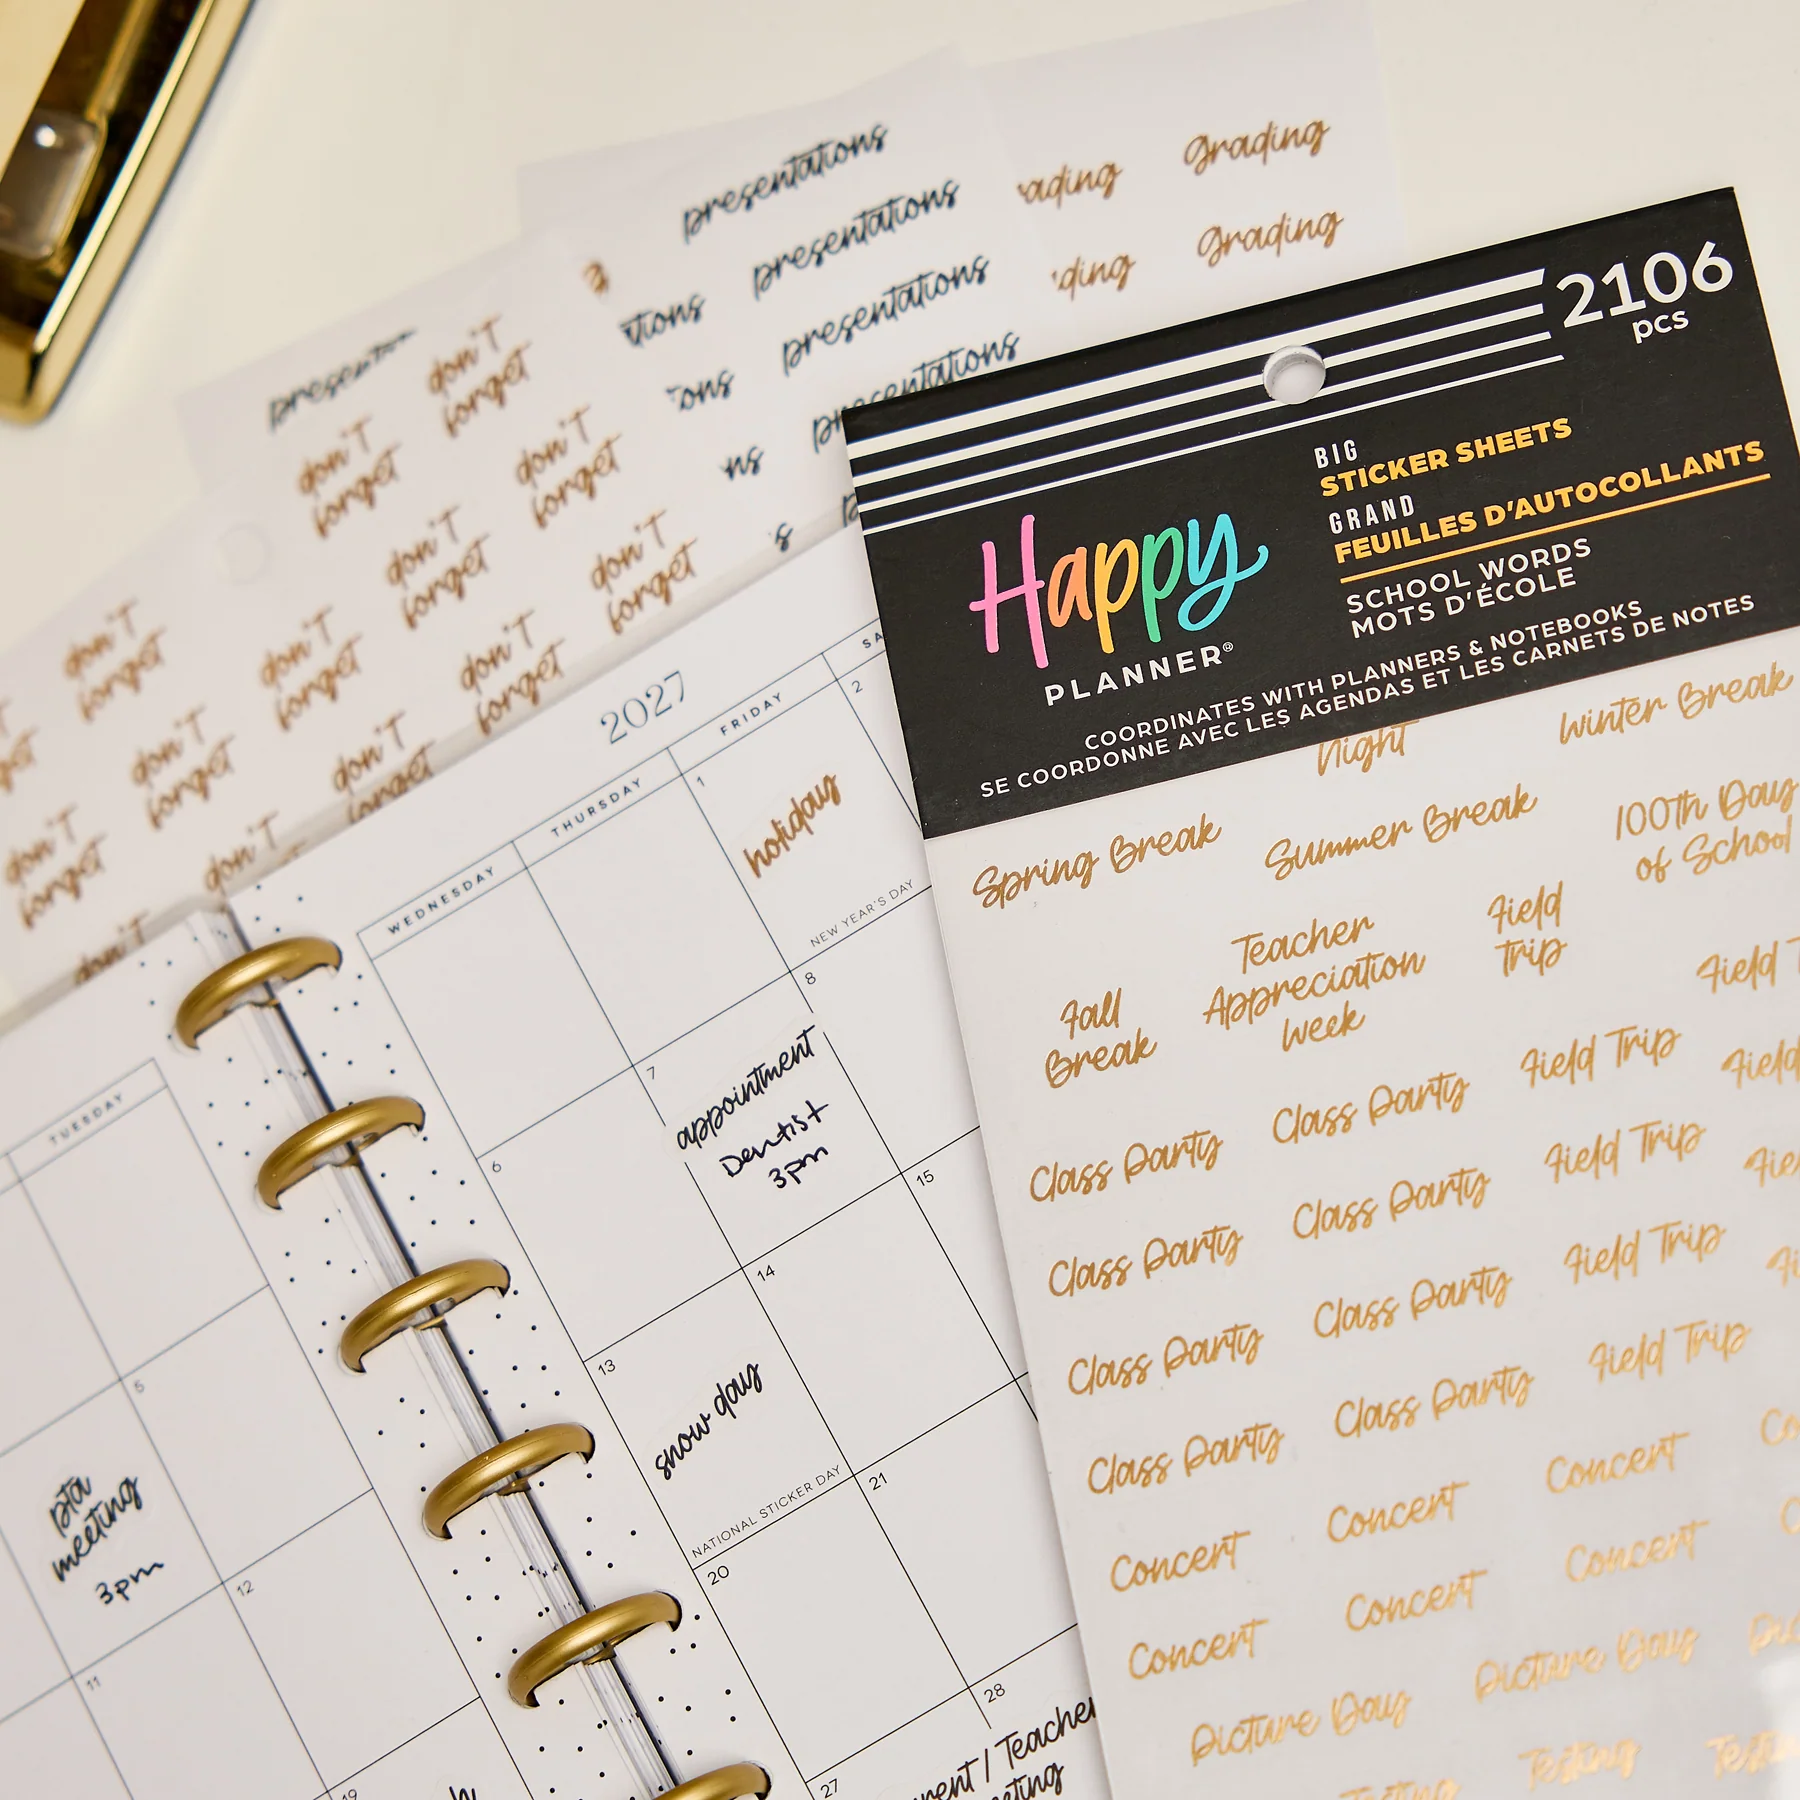 presentations
presentations
presentations
presentations
grading
grading
don't
forget
don't
forget
don't
forget
don't
forget
don't
forget
don't
forget
don't
forget
don't
forget
don't
forget
don't
forget
don't
forget
don't
don't
2106
pcs
BIG
STICKER SHEETS
GRAND
FEUILLES D'AUTOCOLLANTS
SCHOOL WORDS
MOTS D'ÉCOLE
Happy
PLANNER®
COORDINATES WITH PLANNERS & NOTEBOOKS
SE COORDONNE AVEC LES AGENDAS ET LES CARNETS DE NOTES
Night
Winter Break
Spring Break
Summer Break
100th Day
of School
Fall
Break
Teacher
Appreciation
Week
Field
Trip
Field
Class Party
Class Party
Field Trip
Field
Class Party
Class Party
Field Trip
Class Party
Class Party
Field Trip
Class Party
Class Party
Field Trip
Concert
Concert
Concert
Concert
Concert
Concert
Picture Day
Picture Day
Testing
Testing
2027
TUESDAY
WEDNESDAY
THURSDAY
FRIDAY
1
2
holiday
NEW YEAR'S DAY
5
pta
meeting
3pm
6
7
appointment
Dentist
3pm
8
11
12
13
snow day
NATIONAL STICKER DAY
14
15
19
20
21
27
28
Teacher